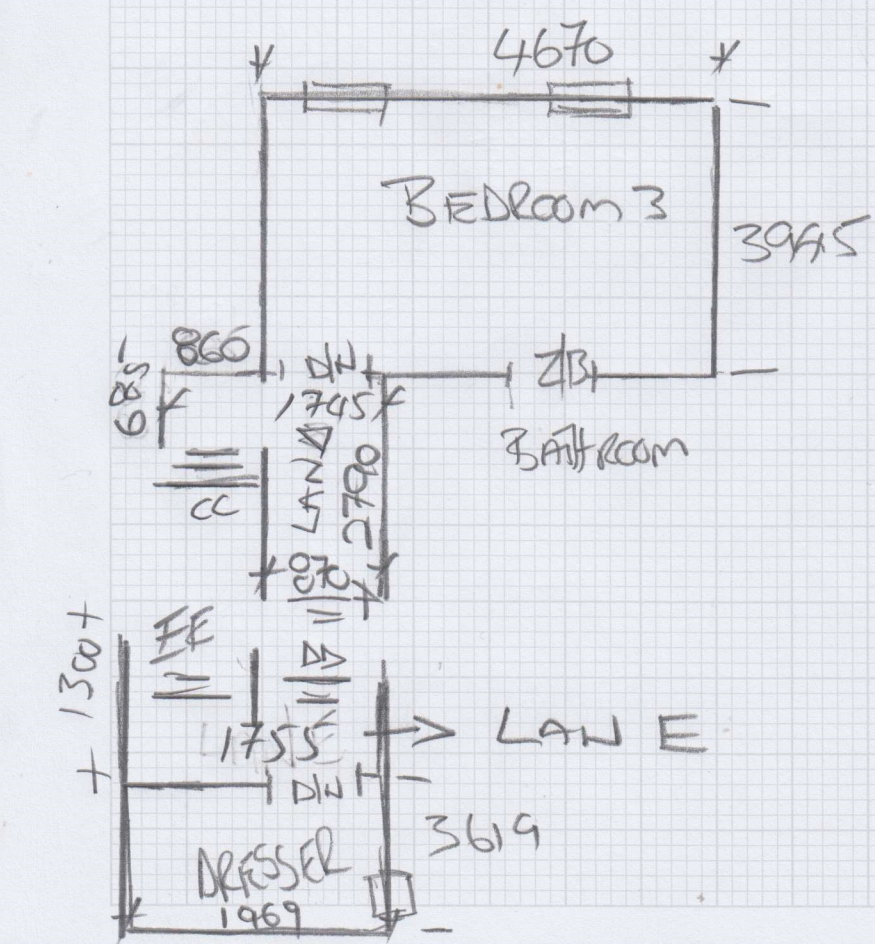 4670
BEDROOM 3
3945
866
D/N
Z/B
685
1745
BATHROOM
LAN D
2790
CC
870
EE
1300
DD
1755
LAN E
D/N
3619
DRESSER
1969